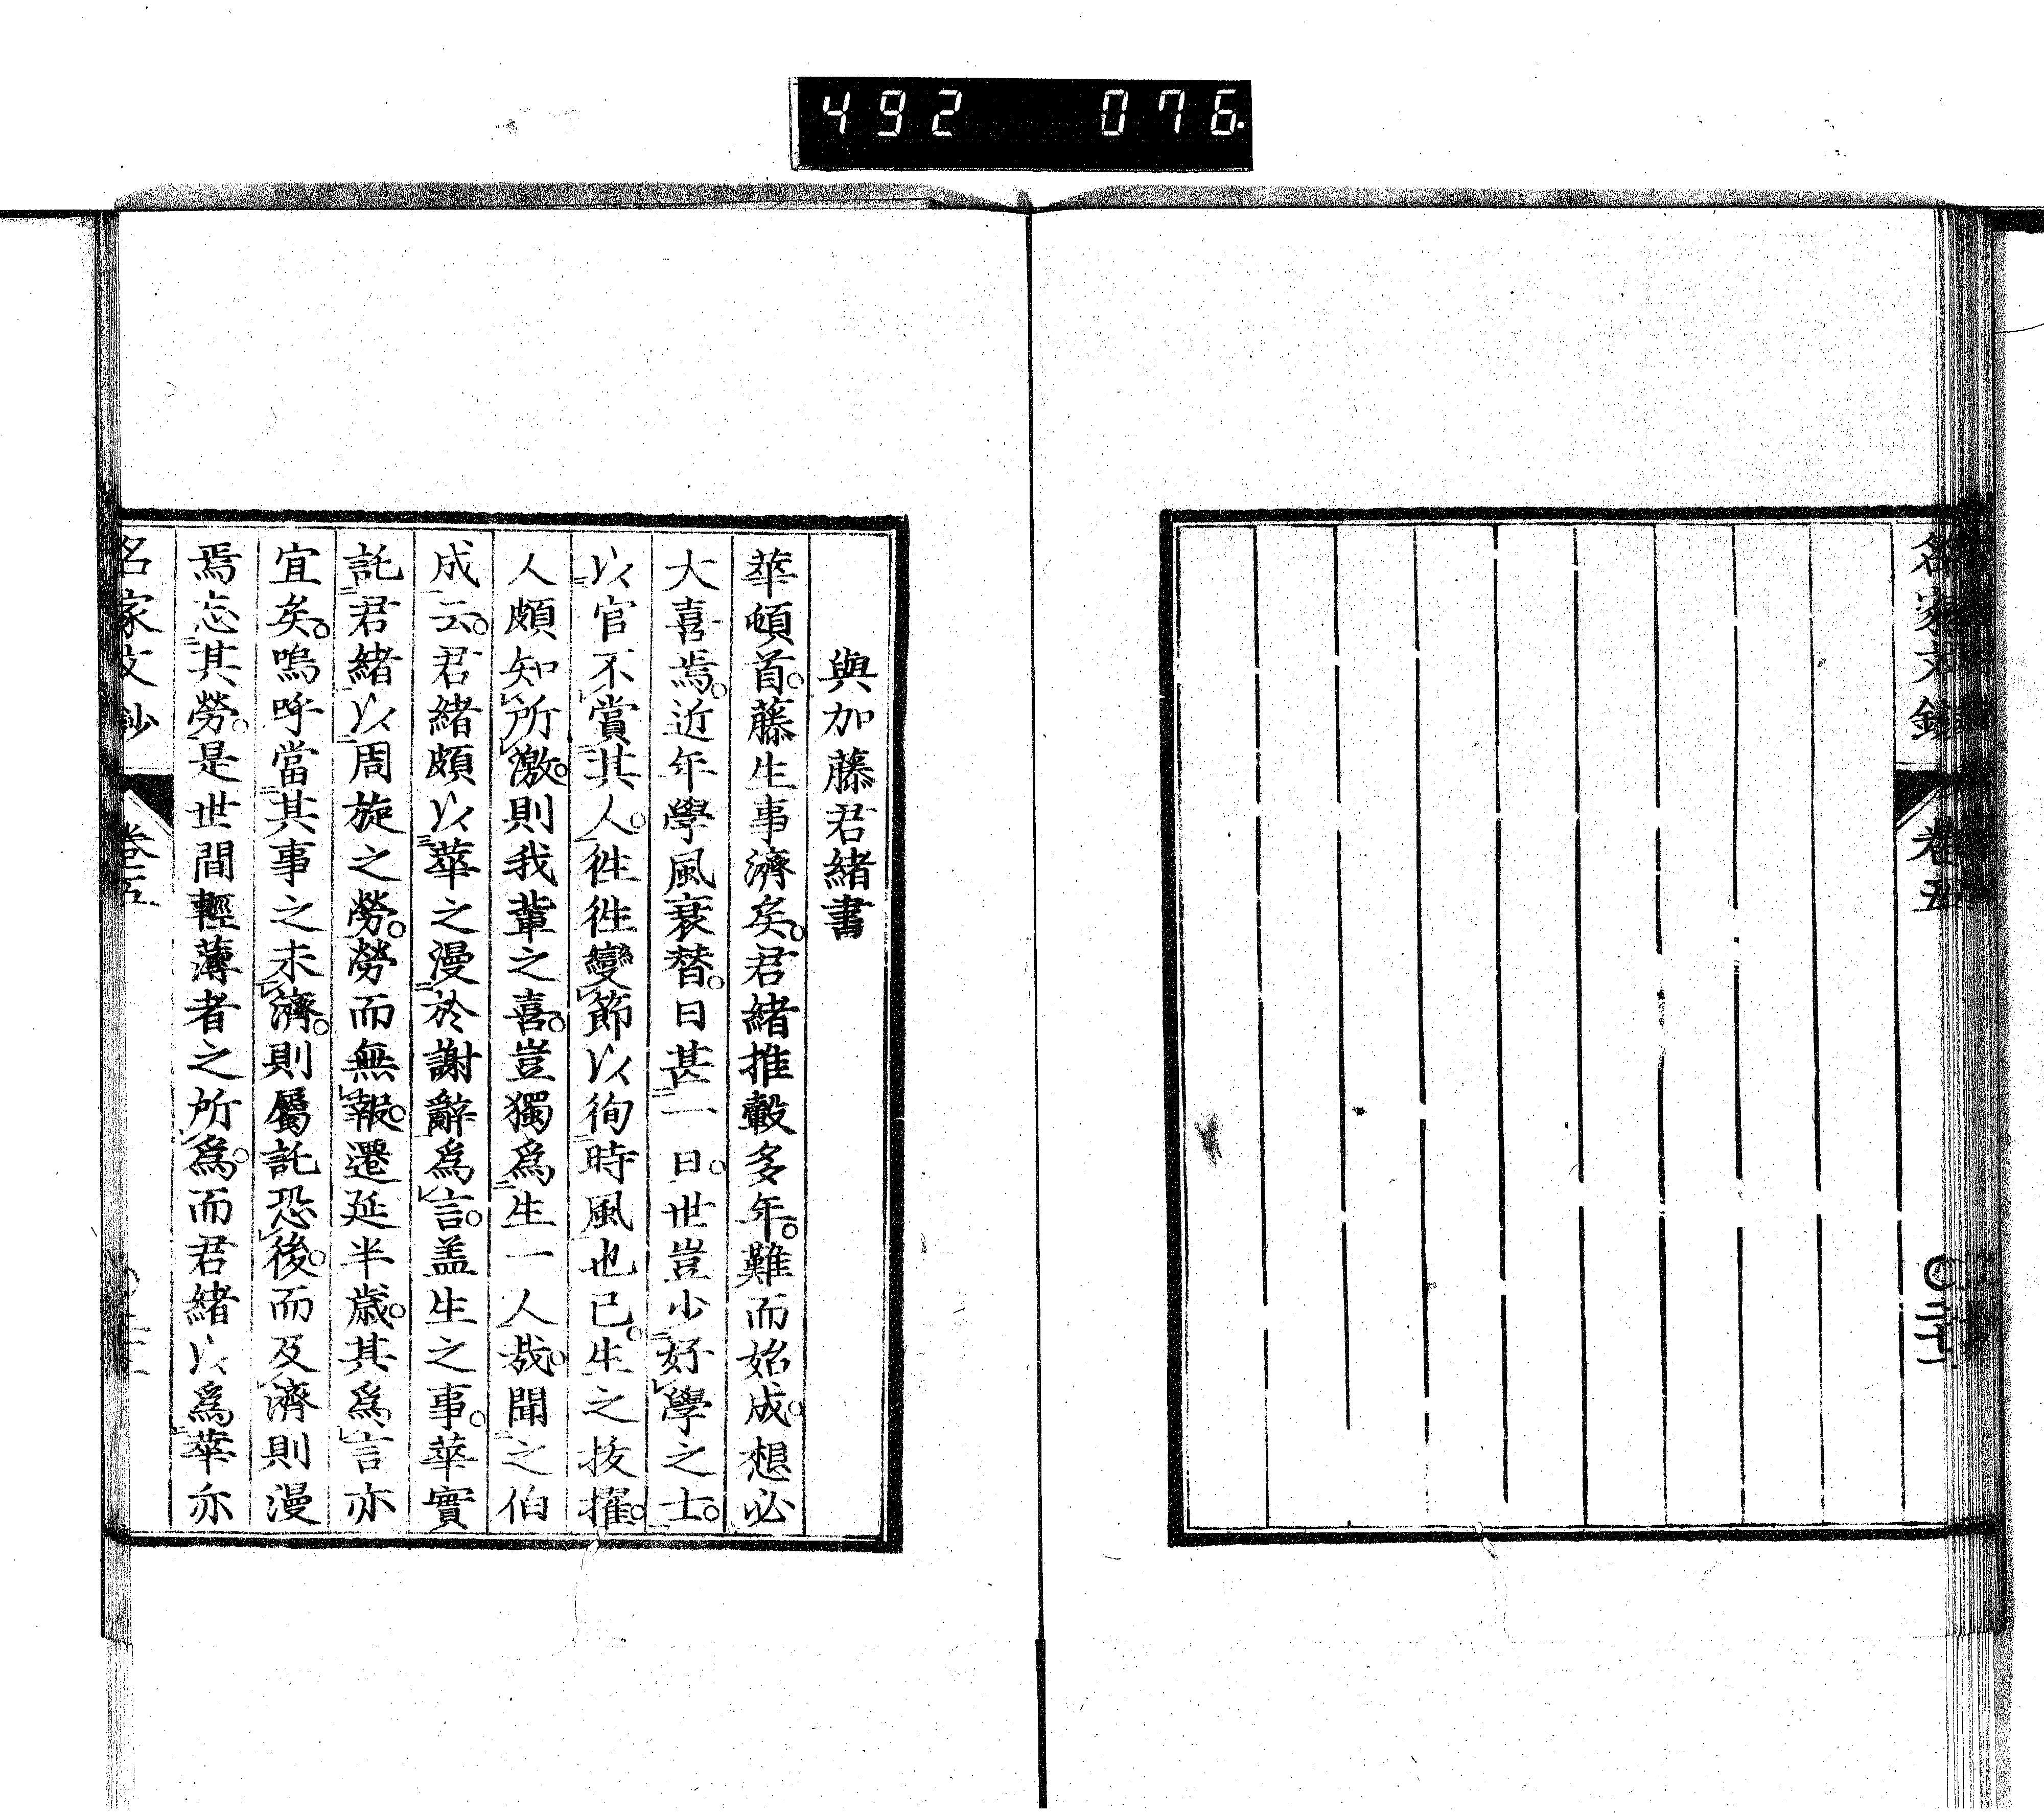 492 076
名家文鈔 卷五
與加藤君緒書
華頓首。藤生事濟矣。君緒推轂多年。難而始成。想必
大喜焉。近年學風衰替。日甚一日。世豈少好學之士。
以官不賞其人。徃徃變節以徇時風也已。生之拔擢。
人頗知所激。則我輩之喜。豈獨爲生一人哉。聞之伯
成云。君緒頗以華之漫於謝辭爲言。盖生之事。華實
託君緒以周旋之勞。勞而無報。遷延半歲。其爲言亦
宜矣。嗚呼當其事之未濟。則屬託恐後。而及濟則漫
焉忘其勞。是世間輕薄者之所爲。而君緒以爲華亦
名家文鈔 卷五